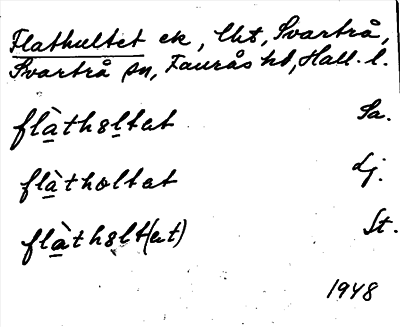 Flathultet ek, lht, Svartrå,
Svartrå sn, Faurås hd, Hall. l.
flàthɵltət Sa.
flàthɷltət dj.
flàthɵlt(ət) St.
1948